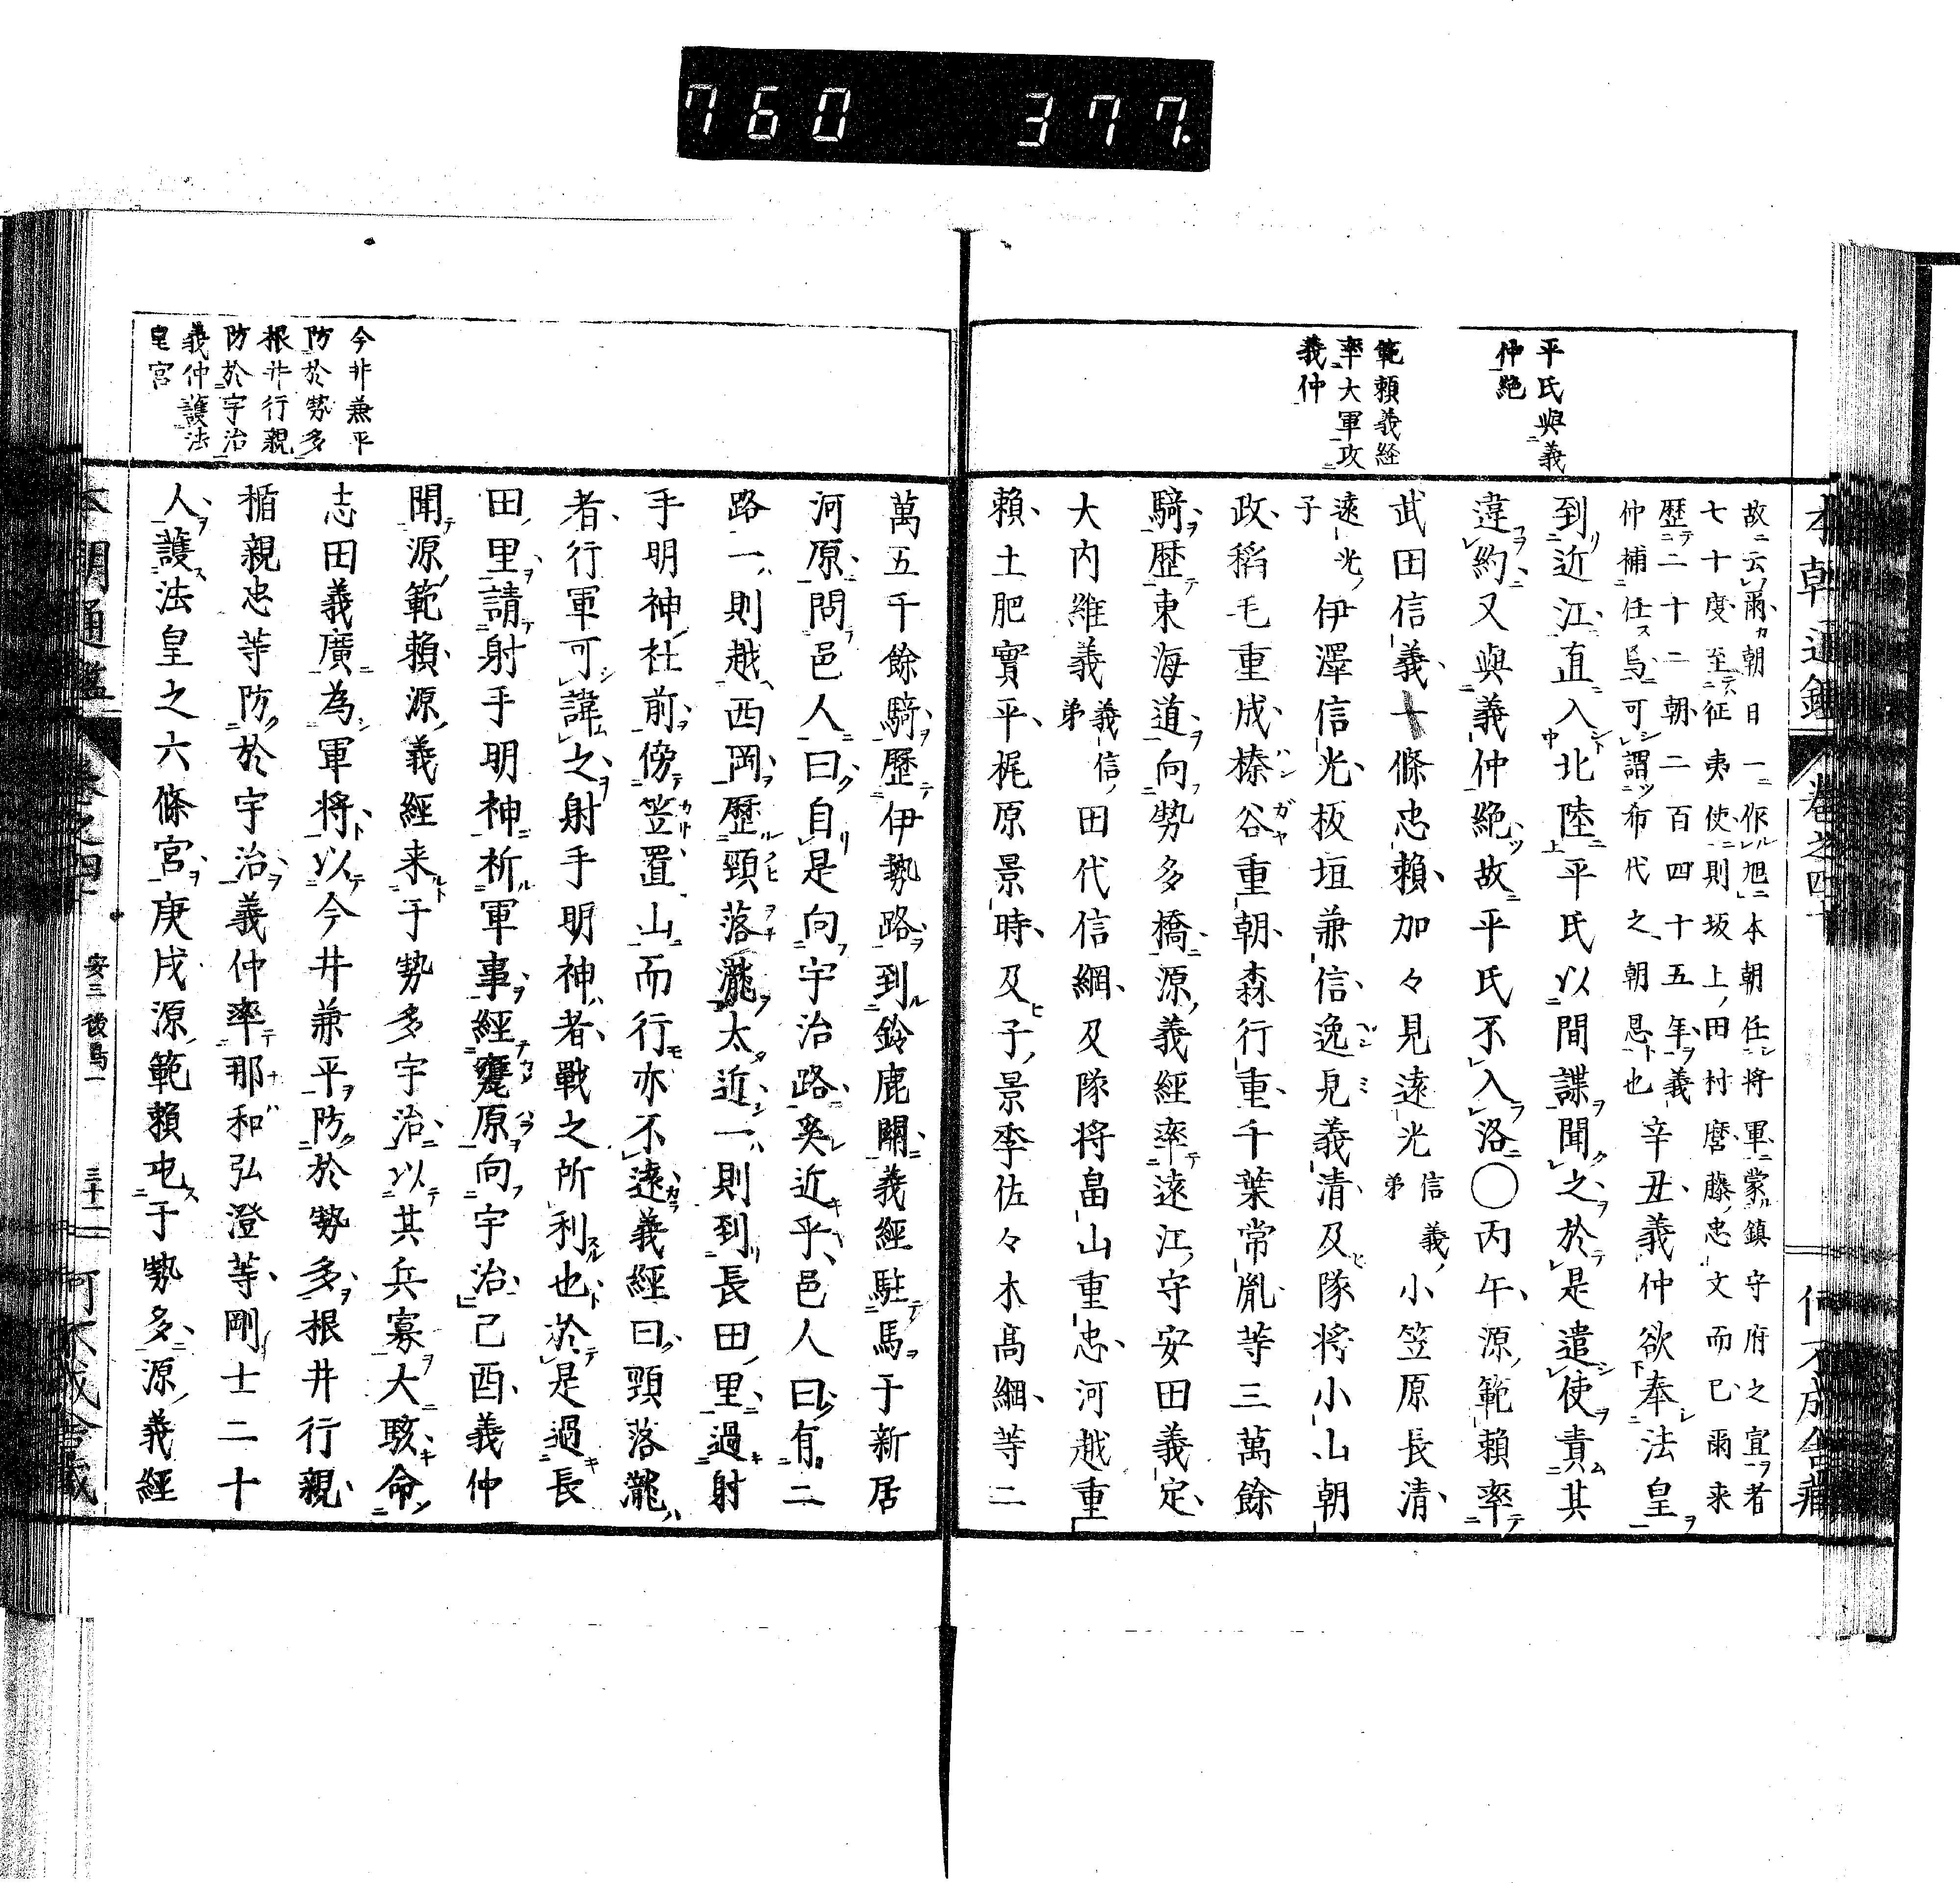 760 377.
本朝通鑑 卷之四十 何不成舍藏
平氏與義
仲絶
範賴義経
率大軍攻
義仲
故云爾朝日一作旭本朝任將軍蒙鎮守府之宜者
七十度至征夷使則坂上田村麿藤忠文而已爾来
歴二十二朝二百四十五年義
仲補任焉可謂希代之朝恩也
辛丑義仲欲奉法皇
到近江直入北陸平氏以間諜聞之於是遣使責其
違約又與義仲絶故平氏不入洛○丙午源範賴率
武田信義十條忠賴加々見遠光信義弟小笠原長清
遠光子伊澤信光板垣兼信逸見義清及隊将小山朝
政稻毛重成榛谷重朝森行重千葉常胤等三萬餘
騎歴東海道向勢多橋源義經率遠江守安田義定
大内維義義信弟田代信綱及隊将畠山重忠河越重
賴土肥實平梶原景時及子景季佐々木髙綱等二
萬五千餘騎歷伊勢路到鈴鹿關義經駐馬于新居
河原問邑人曰自是向宇治路奚近乎邑人曰有二
路一則越西岡歷頸落瀧太近一則到長田里過射
手明神社前傍笠置山而行亦不遠義經曰頸落瀧
者行軍可諱之射手明神者戰之所利也於是過長
田里請射手明神祈軍事經甕原向宇治己酉義仲
聞源範賴源義經来于勢多宇治以其兵寡大駭命
志田義廣為軍将以今井兼平防於勢多根井行親
楯親忠等防於宇治義仲率那和弘澄等剛士二十
人護法皇之六條宮庚戌源範賴屯于勢多源義經
今井兼平
防於勢多
根井行親
防於宇治
義仲護法
皇宮
本朝通鑑 卷之四十 安三 後鳥一 三十一 何不成舍藏